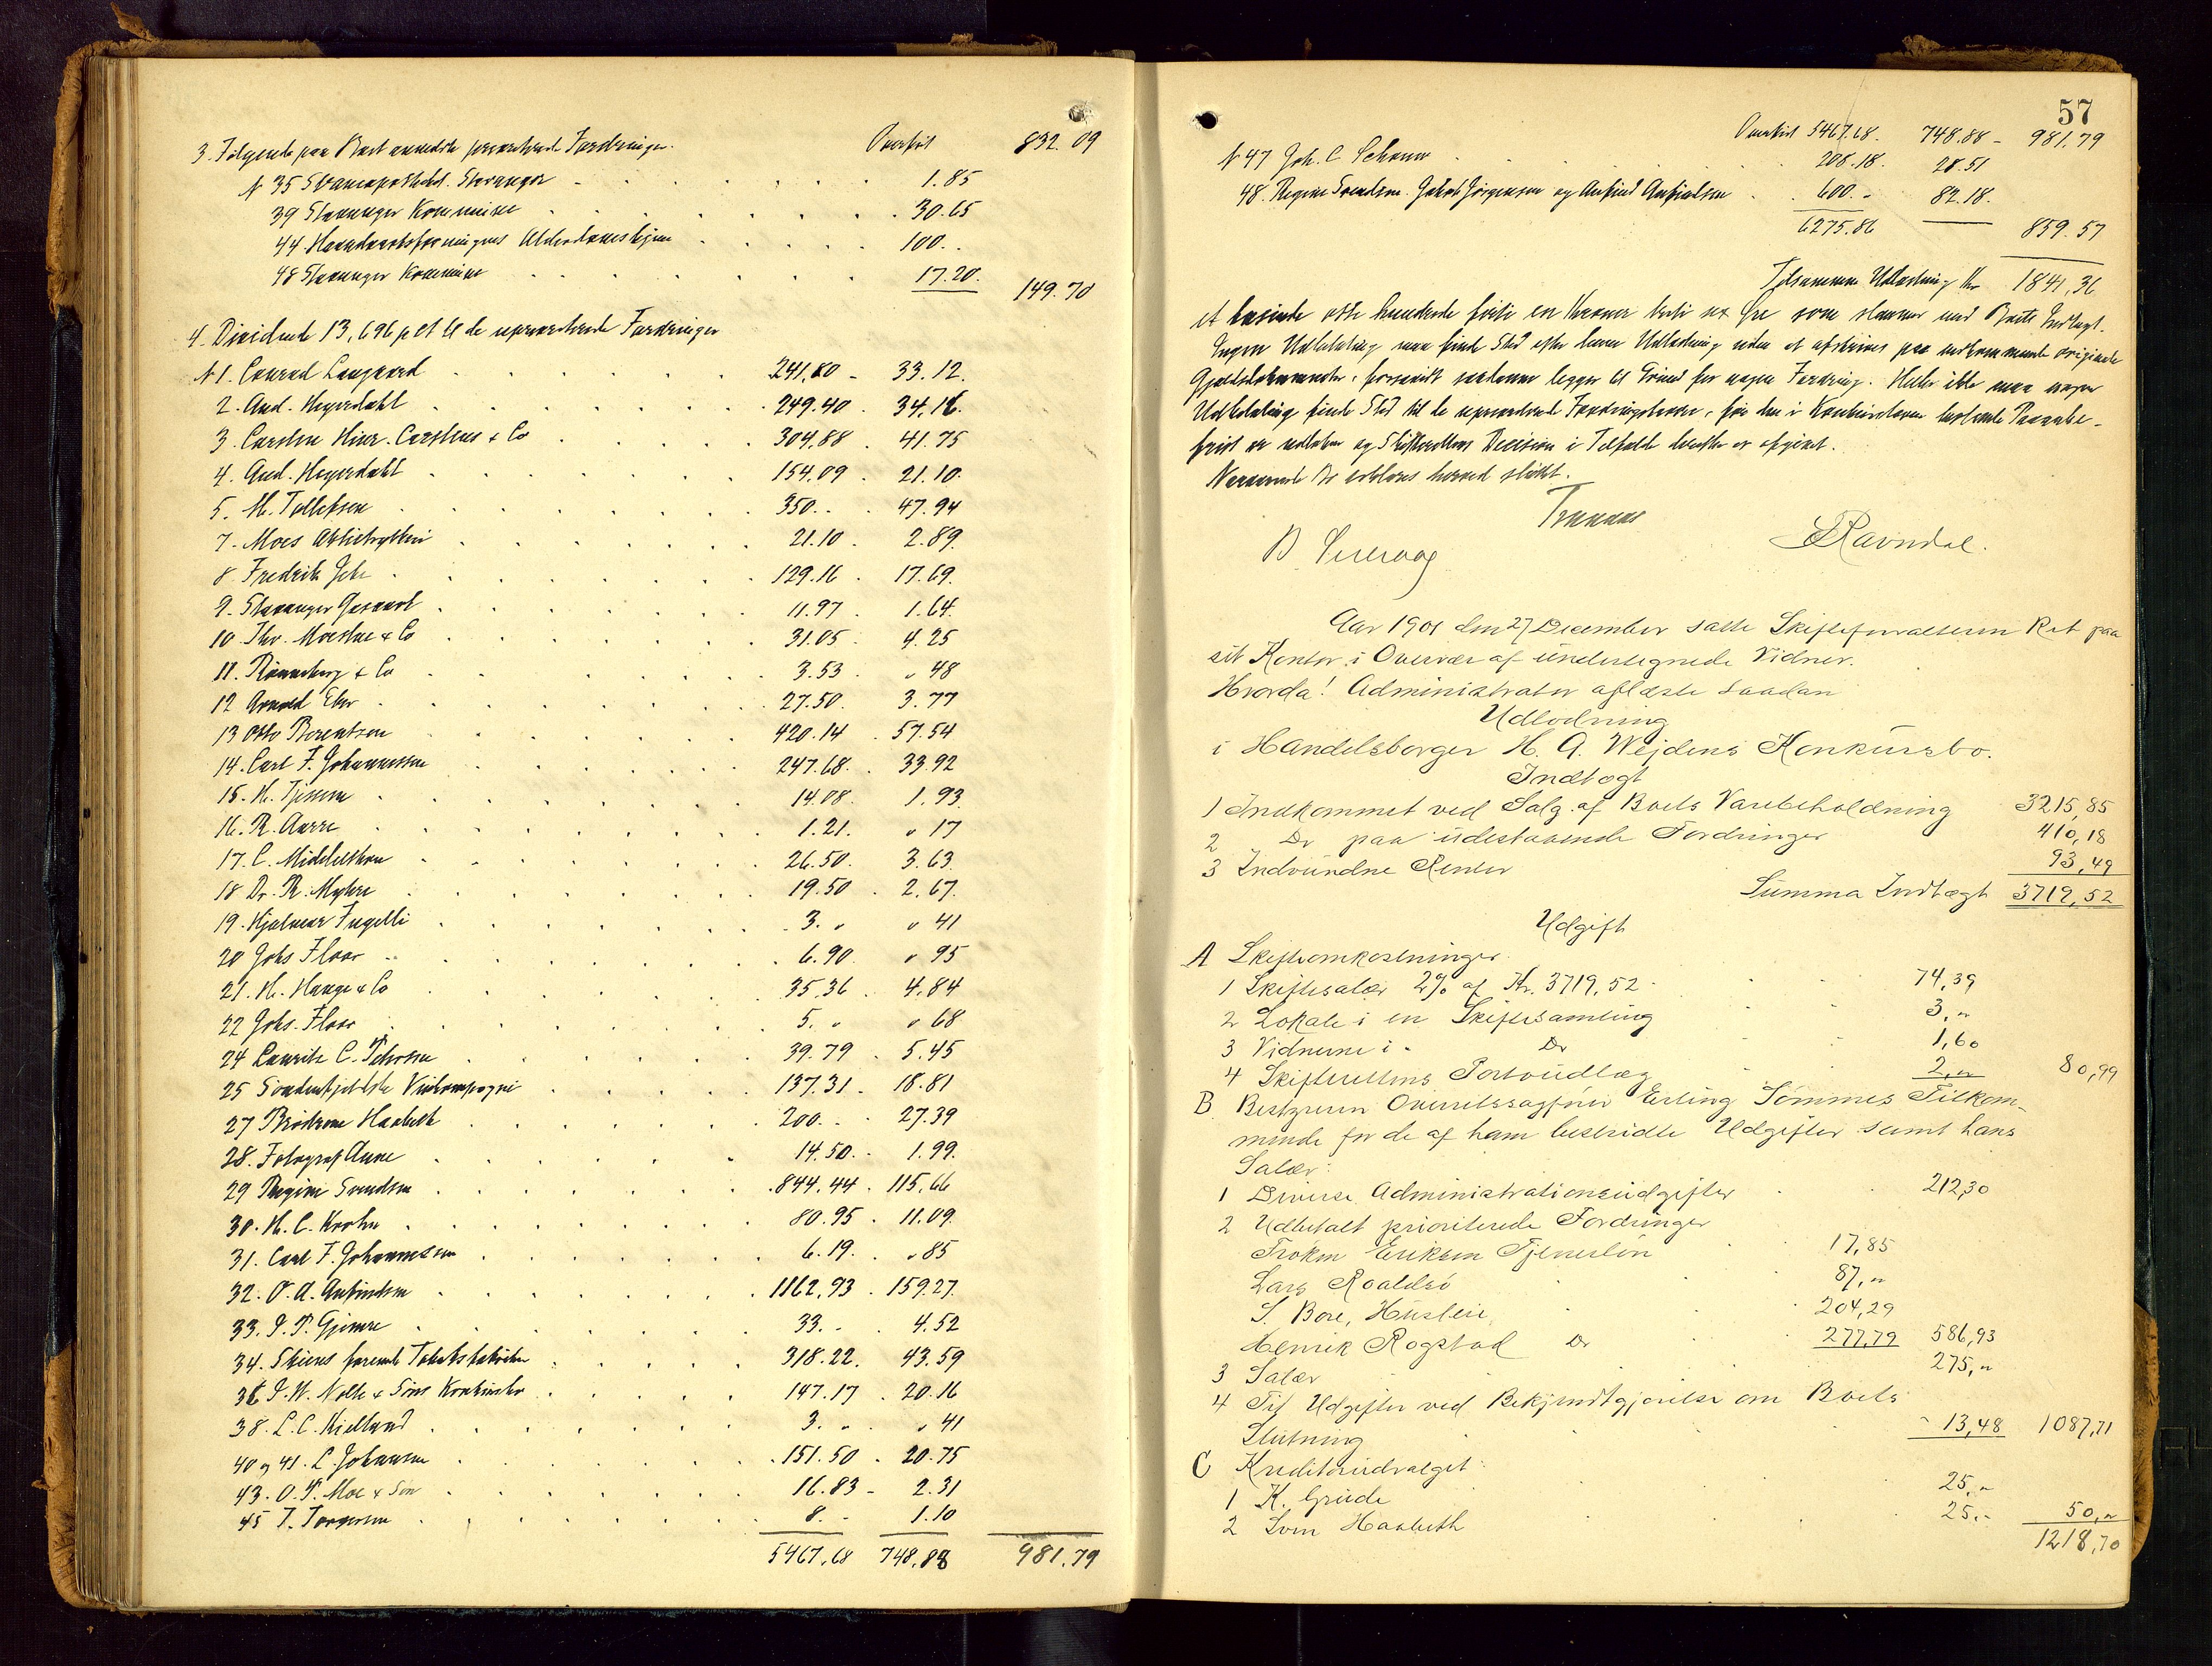 3. Følgende paa Boet anmeldte prioriterede Fordringer. Overført 832.09
N 35 Stavanger 1.85
39 Stavanger Kommune 30.65
44 Haandværksforeningens Alderdomshjem 100..
48 Stavanger Kommune 17.20. 149.70
4. Dividende 13,696 pCt til de uprioriterede Fordringer
N 1. Conrad Langaard 241.80 - 33.12.
2. And. Heyerdahl 249.40 34.16.
3. Carsten Hinr. Carstens & Co 304.88 41.75
4. And. Heyerdahl 154.09 21.10.
5. M. Tollefsen 350.. 47.94
7. Moes Aktietrykkeri 21.10 2.89.
8. Fredrik 129.16 17.69.
9. Stavanger Gasværk 11.97 1.64.
10. Thv. Moestue & Co 31.05 4.25
11. Rønneberg & Co 3.53 " 48
12 Arnold 27.50. 3.77
13 Otto Berentsen 420.14 57.54
14. Carl F. Johannessen 247.68. 33.92
15. H. 14.08. 1.93
16. R. Aarre 1.21. " 17
17. C. Middelthon 26.50. 3.63
18 Dr. R. Myhre 19.50 2.67.
19. Hjalmar Fugelli 3. " " 41
20 Johs Floor 6.90. " 95
21. H. Hauge & Co 35.36 4.84
22 Johs. Floor 5. " " 68
24 Lauritz C. 39.79 5.45
25 Søndenfjeldske Vinkompagni 137.31 18.81
27 Brødrene Haabeth 200.. 27.39
28. Fotograf Aune 14.50.- 1.99.
29 Regine Svendsen 844.44 115.66
30. H. C. Krohn 80.95 11.09.
31. Carl F. Johannessen 6.19. " 85
32. O. A. Anfindsen 1162.93 159.27.
33. P. T. Gjemre 33.- 4.52
34. Skiens forenede Tobaksfabriker 318.22. 43.59
36 P. W. Nolte & Søns Konkursbo 147.17 20.16
38. L. C. Kielland 3. " " 41
40 og 41. L. Johansen 151.50 20.75
43. O. T. Moe & Søn 16.83 - 2.31
45 T. Torgersen 8.- 1.10
5467.68 748.88 981.79
57
Overført 5467.68. 748.88 - 981.79
N 47 Joh. C. Schanor 208.18. 28.51
48. Regine Svendsen. Jakob Jörgensen og Anfind Anfindsen 600.- 82.18.
6275.86 859.57
Tilsammen Udlodning Kr 1841,36
et tusinde otte hundrede firti en Kroner treti sex Øre som stemmer med Boets Indtægt.
Ingen Udbetaling maa finde Sted efter denne Udlodning uden at afskrives paa vedkommende originale
Gjældsdokumenter, forsaavidt saadanne ligger til Grund for nogen Fordring. Heller ikke maa nogen
Udbetaling finde Sted til de uprioriterede Fordringshavere, før den i Konkursloven bestemte Paaanke-
frist er udløben og Skifterettens Decision i Tilfælde derefter er afgivet.
Nærværende Bo erklæres herved sluttet.
Ravndal.
Aar 1901 den 27 December satte Skifteforvalteren Ret paa
sit Kontor i Overvær af undertegnede Vidner.
Hvorda! Administrator aflæste saadan
Udlodning
i Handelsborger H. A. Wejdens Konkursbo.
Indtægt
1 Indkommet ved Salg af Boets Varebeholdning 3215,85
2 Do paa udestaaende Fordringer 410,18
3 Indvundne Renter 93,49
Summa Indtægt 3719,52
Udgift
A Skifteomkostninger.
1 Skiftesalær 2% af Kr. 3719,52. 74,39
2 Lokale i en Skiftesamling 3,"
3 Vidnerne i - Do 1,60
4 Skifterettens Portoudlæg 2," 80,99
B. Bestyreren Overretssagfører Erling Sömmes Tilkom-
mende for de af ham bestridte Udgifter samt hans
Salær:
1 Diverse Administrationsudgifter 212,30
2 Udbetalt prioriterede Fordringer
Frøken Eriksen Tjenerløn 17,85
Lars Roaldsö 87,"
S. Bore, Husleie 204,29
Henrik Rogstad Do 277,79 586,93
3 Salær 275,"
4 Til Udgifter ved Bekjendtgjørelse om Boets
Slutning 13,48 1087,71
C Kreditorudvalget:
1 K. Grude 25,"
2 Sven Haabeth 25,- 50,"
1218,70